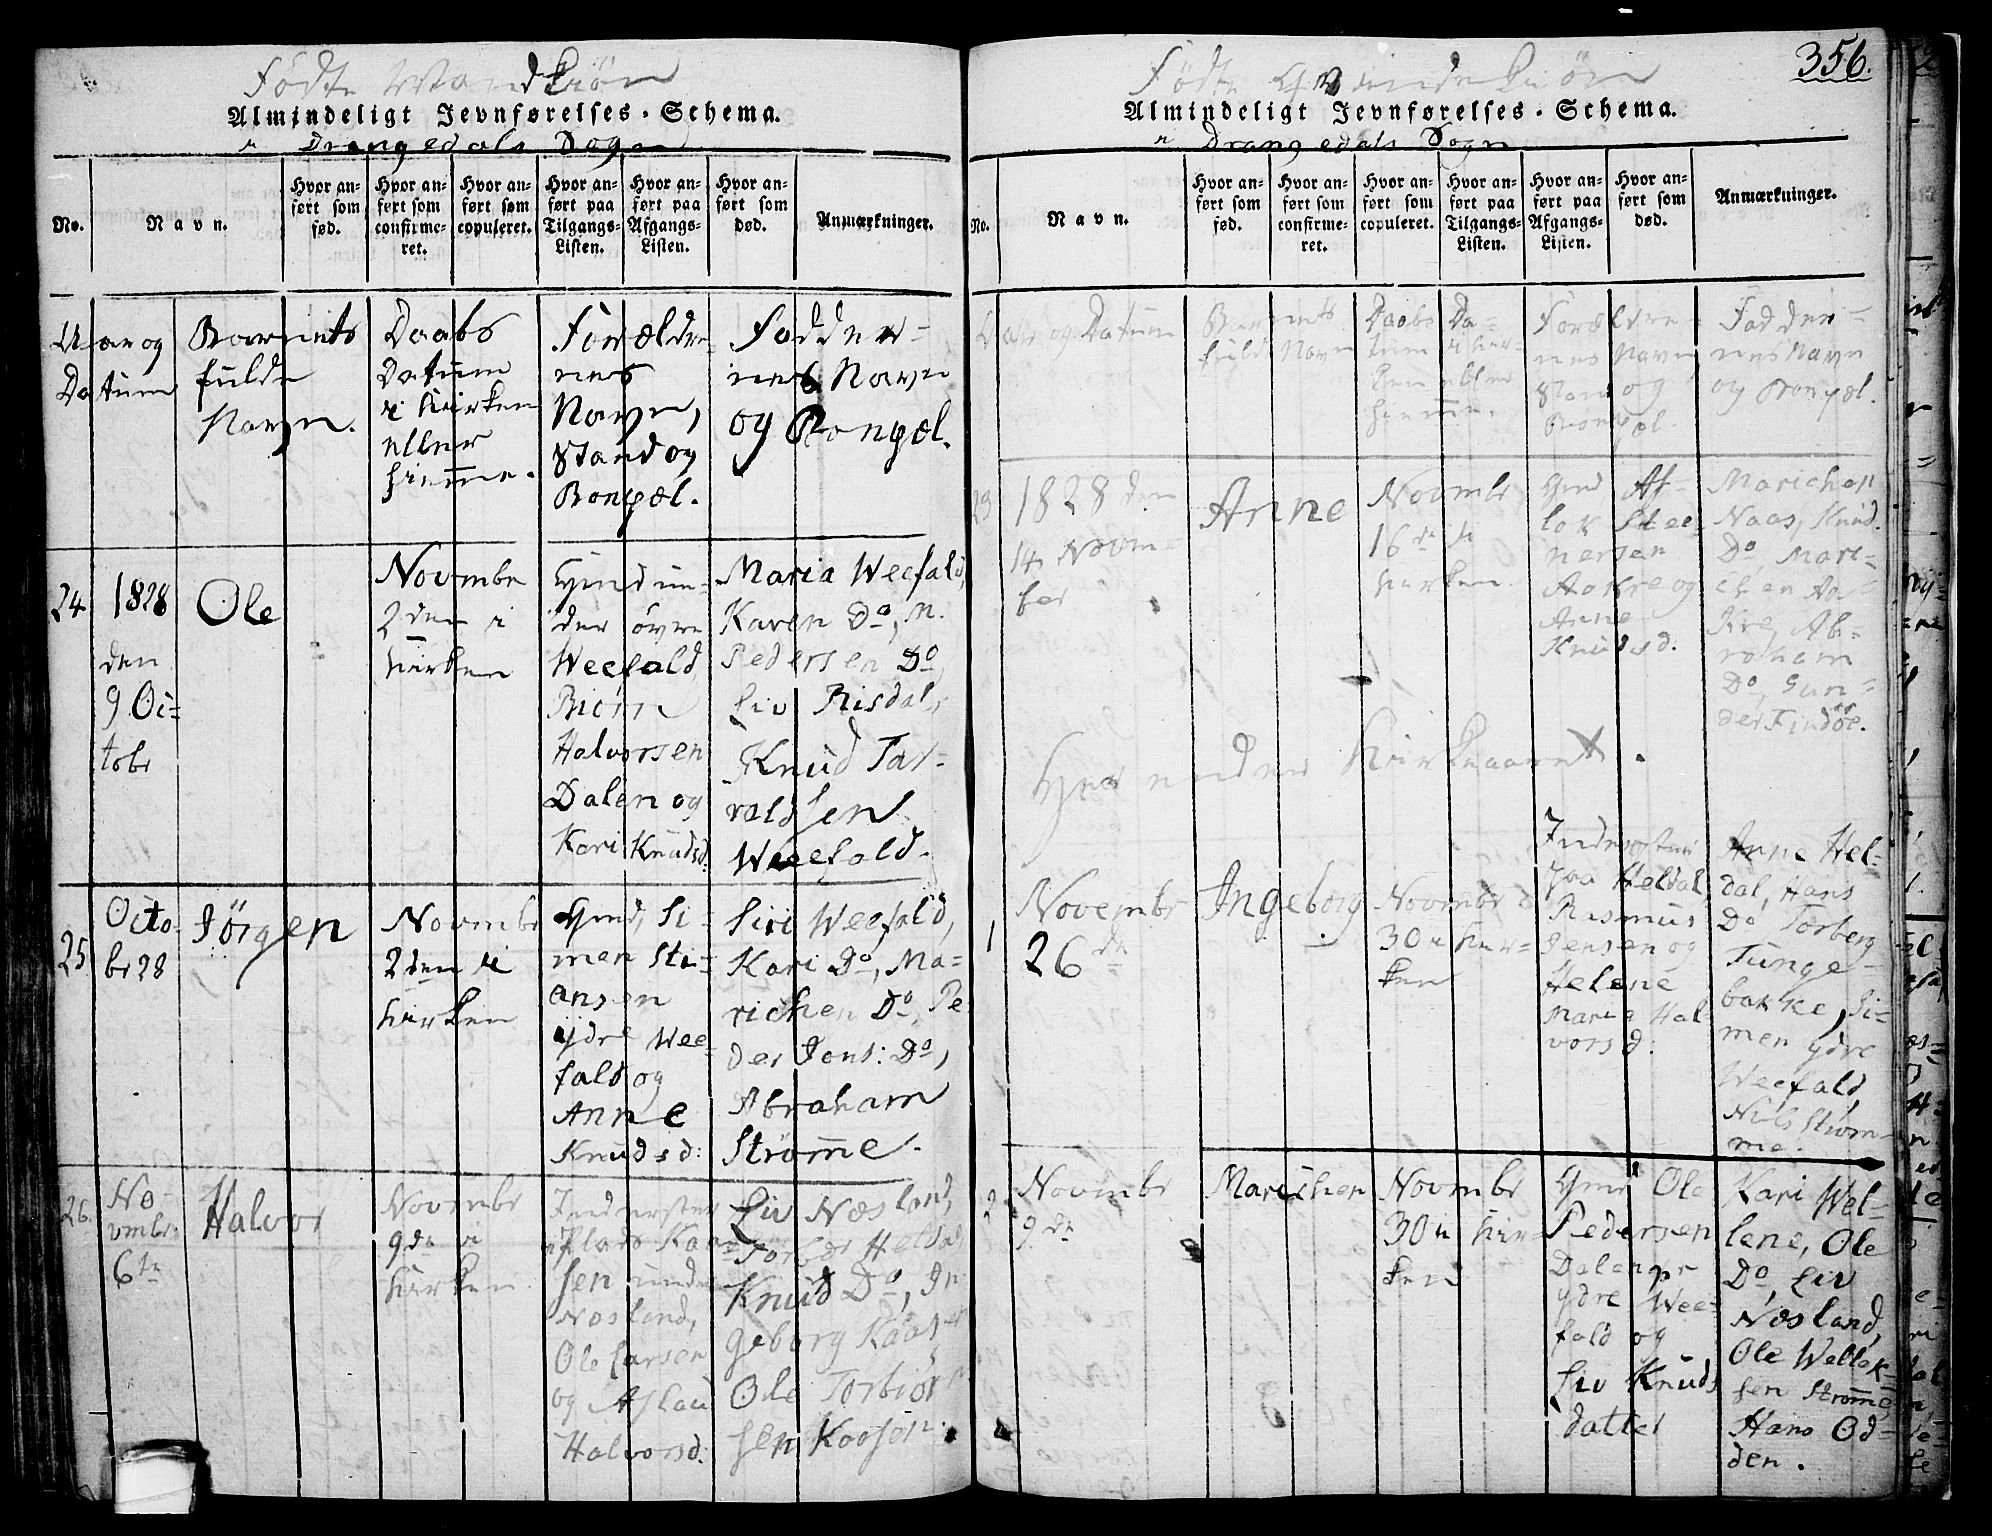 Fødte Mandkiøn
Almindeligt Jevnførelses-Schema.
i Drangedals Sogn
No.
Navn.
Hvor an-
ført som
fød.
Hvor an-
ført som
confirme-
ret.
Hvor an-
ført som
copuleret.
Hvor an-
ført paa
Tilgangs-
Listen.
Hvor an-
ført paa
Afgangs-
Listen.
Hvor an-
ført som
død.
Anmærkninger.
Aar og
Datum
Barnets
fulde
Navn.
Daabs
Datum
i kirken
eller
hjemme.
Forældre-
nes
Navn,
Stand og
Bopæl.
Fadder-
nes Navn
og Bopæl.
24
1828
den
9 Oc-
tobr
Ole
Novembr
2den i
kirken
Gmd un-
der øvre
Weefald
Biorn
Halvorsen
Dalen og
Kari Knudsd:
Maria Weefald,
Karen Do, N.
Pedersen Do
Liv Risdal,
Knud Tar-
valdsen
Weefald.
25
Octo-
br 28
Jörgen
Novembr
2den i
kirken
Gmd, Si-
men Sti-
ansen
ydre Wee-
fald og
Anne
Knudsd:
Siri Weefald,
Kari Do, Ma-
richen Do, Pe-
der Jons: Do,
Abraham
Strømme.
26.
No-
vmbr
6te
Halvor
Novembr
9de i
kirken
Inderster
Plads Kaa-
sen under
Næsland,
Ole Larsen
og Aslau
Halvorsd:
Liv Næsland,
Heldal
Knud Do, In-
geborg Kaasen
Ole Torbiörn-
sen Kaasen.
356.
Fødte Qvindekiøn
Almindeligt Jevnførelses-Schema.
i Drangedals Sogn
No.
Navn.
Hvor an-
ført som
fød.
Hvor an-
ført som
confirme-
ret.
Hvor an-
ført som
copuleret.
Hvor an-
ført paa
Tilgangs-
Listen.
Hvor an-
ført paa
Afgangs-
Listen.
Hvor an-
ført som
død.
Anmærkninger.
Aar og Datum
Barnets
fulde Navn
Daabs Da-
tum i kir-
ken eller
hjemme.
Forældre-
nes Navn
Stand og
Bopæl.
Fadder-
nes Navn
og Bopæl.
23
1828 den
14 Novem-
ber
Anne
Novembr
16de i
kirken
Gmd As-
lok Stee-
nersen
Aakre og
Anne
Knudsd.
Marichen
Naas, Knud
Do, Mari-
chen Aa-
kre, Ab-
raham
Do, Gun-
der Findöe.
Her ender Kirkeaaret.
1
Novembr
26de
Ingeborg
Novembr d
30 i kir-
ken
Inderster
paa Heldal,
Rasmus
Jensen og
Helene
Maria Hal-
vorsd:
Anne Hel-
dal, Hans
Do Torberg
Tunge-
bakke, Si-
men ydre
Weefald,
Nils Strøm-
me.
2
Novembr
9de
Marichen
Novembr
30 i kir-
ken
Gmd Ole
Pedersen
Dalen
ydre Wee-
fald og
Liv Knuds
datter
Kari Wel-
lene, Ole
Do, Liv
Næsland,
Ole Wellek-
sen Strømme,
Hans Od-
den.